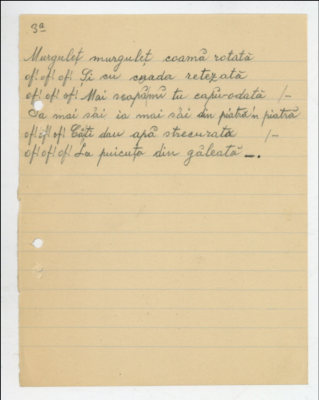 3a
Murguleț murguleț coamă rotată
of! of! of! Și cu coada retezată
of! of! of! Mai scapămi tu capu-odată /-
Ia mai săi, ia mai săi din piatră'n piatră
of! of! of! Căți dau apă strecurată /-
of! of! of! La puicuța din găleată -.